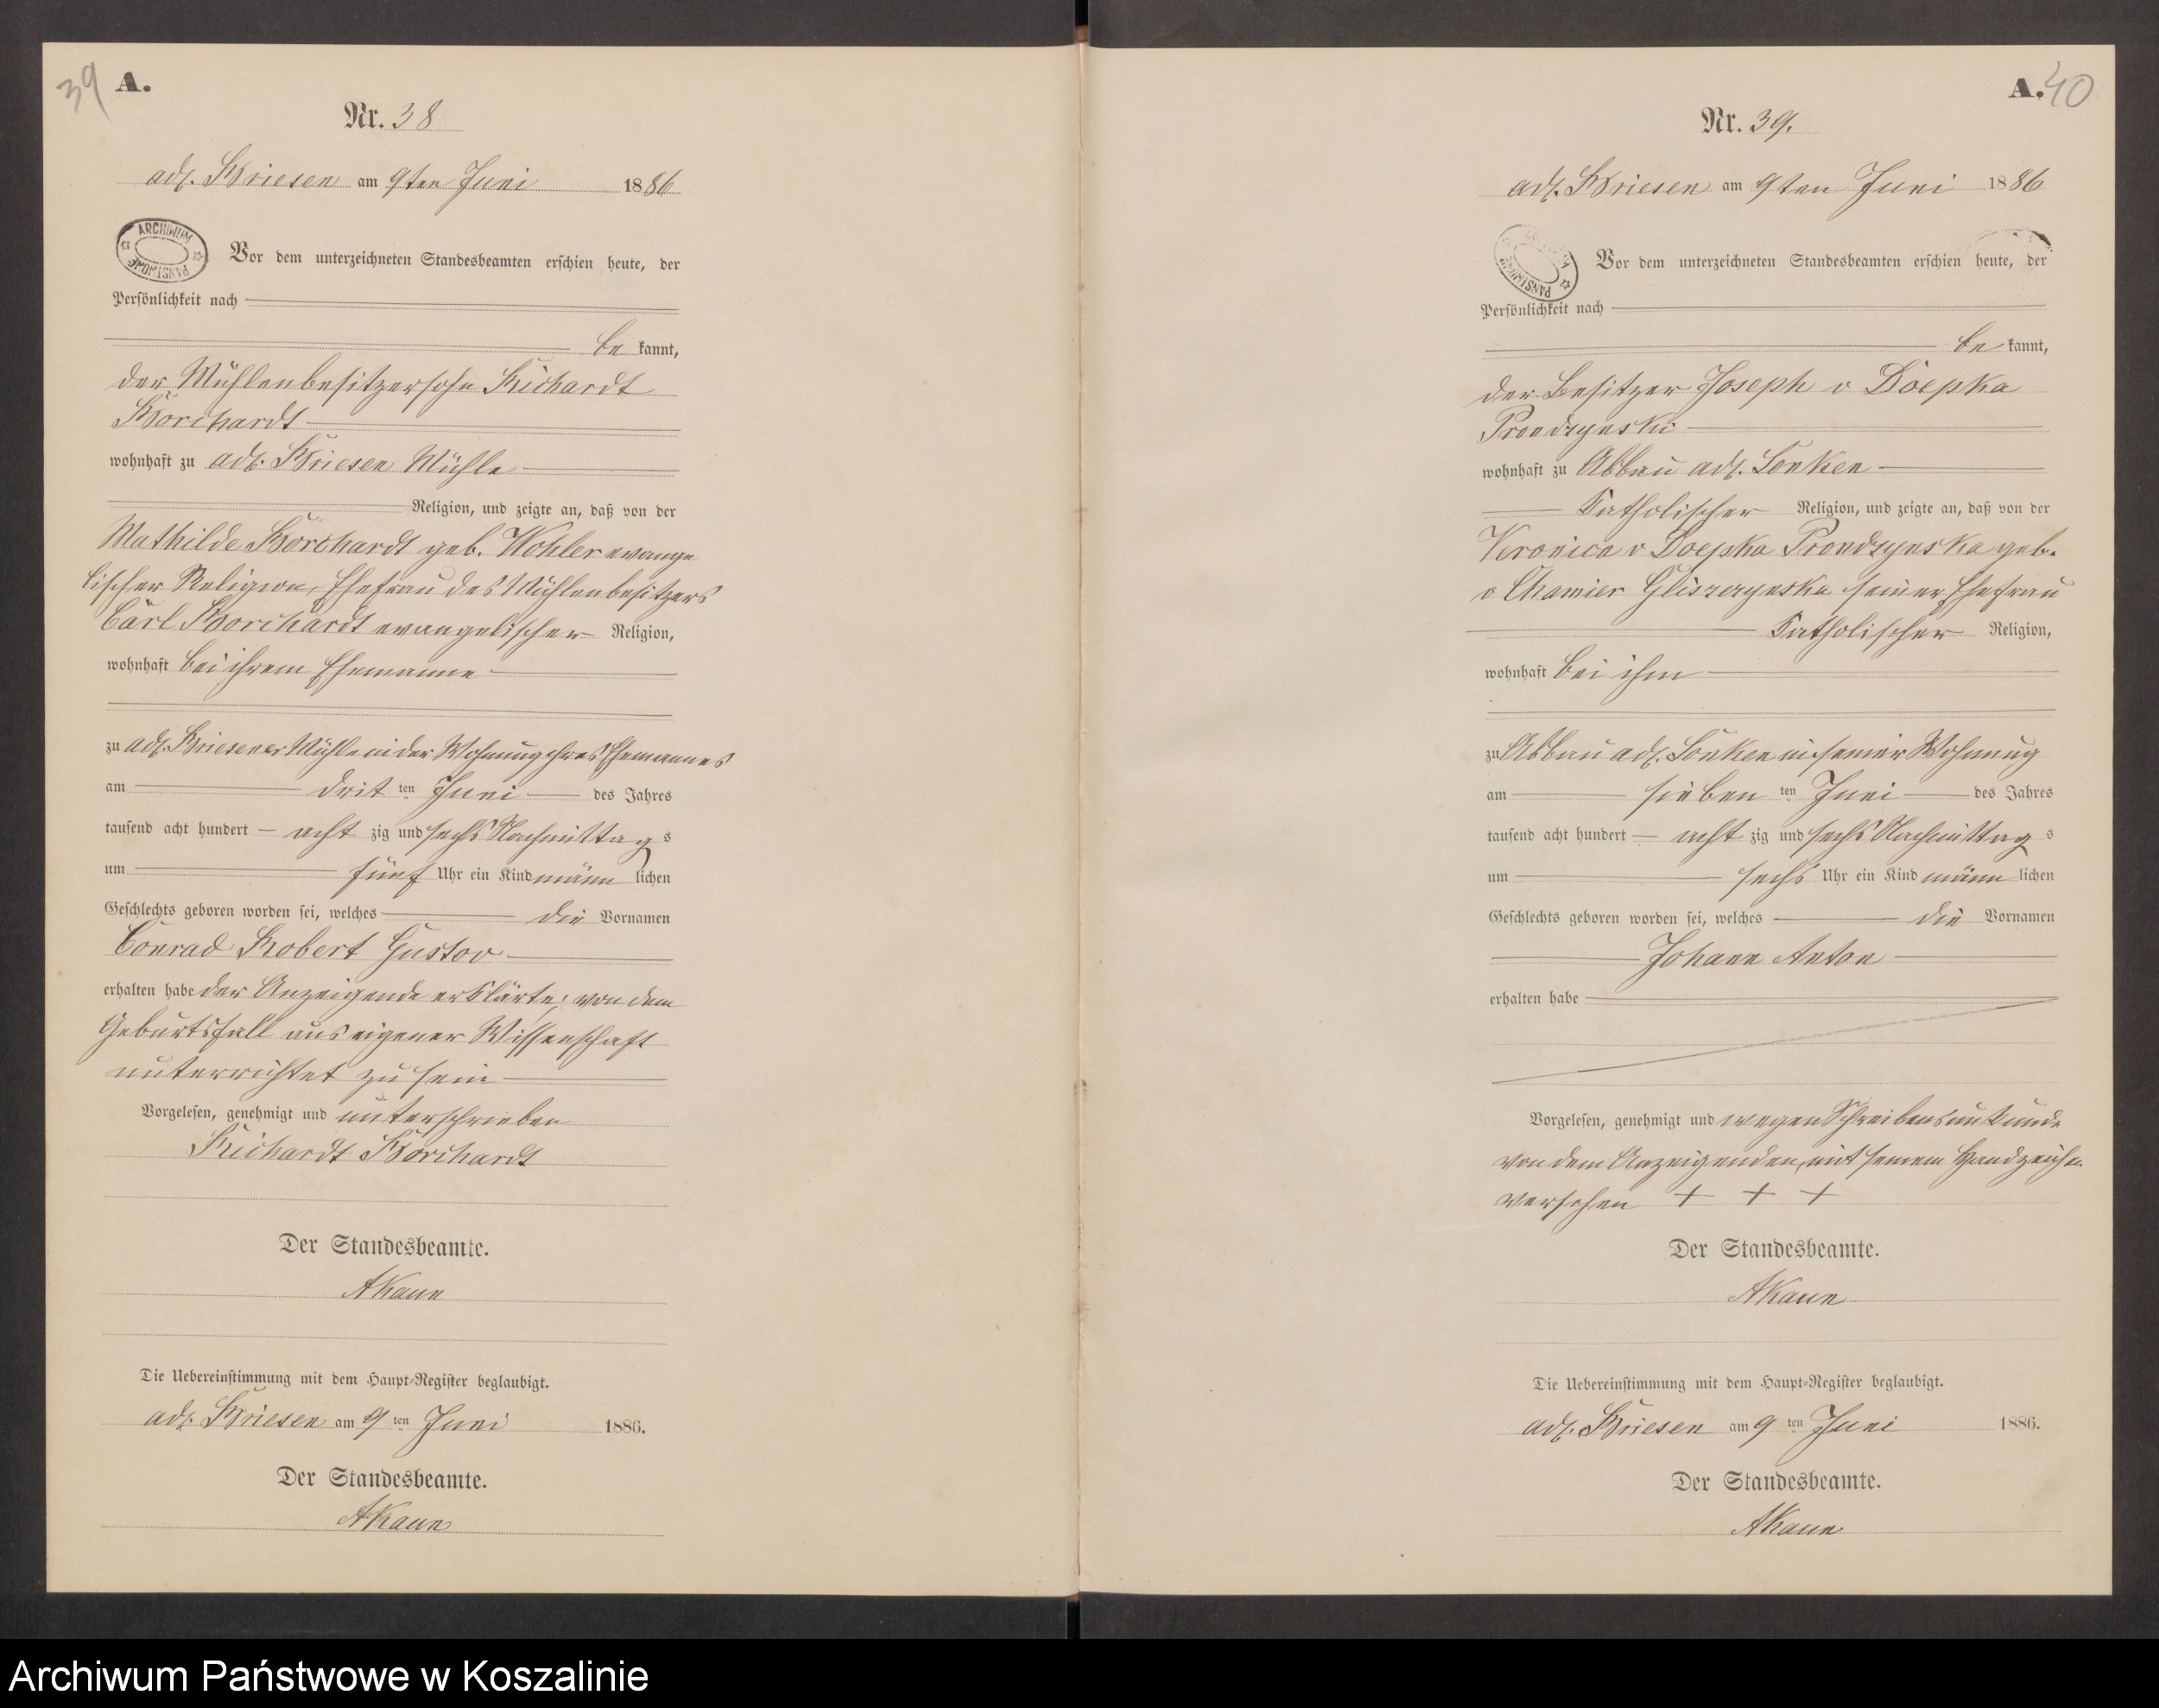 39 A.
Nr. 38
adl. Briesen am 9ten Juni 1886
ARCHIWUM PAŃSTWOWE
Vor dem unterzeichneten Standesbeamten erschien heute, der
Persönlichkeit nach
be kannt,
der Mühlenbesitzersohn Richardt
Borchardt
wohnhaft zu adl. Briesen Mühle
Religion, und zeigte an, daß von der
Mathilde Borchardt geb. Wohler evange
lischer Religion, Ehefrau des Mühlenbesitzers
Carl Borchardt evangelischer Religion,
wohnhaft bei ihrem Ehemanne
zu adl. Briesener Mühle in der Wohnung ihres Ehemannes
am drit ten Juni des Jahres
tausend acht hundert acht zig und sechs Nachmittag s
um fünf Uhr ein Kind männ lichen
Geschlechts geboren worden sei, welches die Vornamen
Conrad Robert Gustav
erhalten habe der Anzeigende erklärte, von dem
Geburtsfall aus eigener Wissenschaft
unterrichtet zu sein
Vorgelesen, genehmigt und unterschrieben
Richardt Borchardt
Der Standesbeamte.
AKaun
Die Uebereinstimmung mit dem Haupt-Register beglaubigt.
adl. Briesen am 9 ten Juni 1886.
Der Standesbeamte.
AKaun
A. 40
Nr. 39.
adl. Briesen am 9ten Juni 1886
Vor dem unterzeichneten Standesbeamten erschien heute, der
Persönlichkeit nach
be kannt,
der Besitzer Joseph v Doepka
Prondzynski
wohnhaft zu Abbau adl. Sonken
Katholischer Religion, und zeigte an, daß von der
Veronica v Doepka Prondzynska geb.
v Chamier Gliszczynska seiner Ehefrau
Katholischer Religion,
wohnhaft bei ihm
zu Abbau adl. Sonken in seiner Wohnung
am sieben ten Juni des Jahres
tausend acht hundert acht zig und sechs Nachmittag s
um sechs Uhr ein Kind männ lichen
Geschlechts geboren worden sei, welches die Vornamen
Johann Anton
erhalten habe
Vorgelesen, genehmigt und wegen Schreibensunkunde
von dem Anzeigenden mit seinem Handzeichen
versehen + + +
Der Standesbeamte.
AKaun
Die Uebereinstimmung mit dem Haupt-Register beglaubigt.
adl. Briesen am 9 ten Juni 1886.
Der Standesbeamte.
AKaun
Archiwum Państwowe w Koszalinie